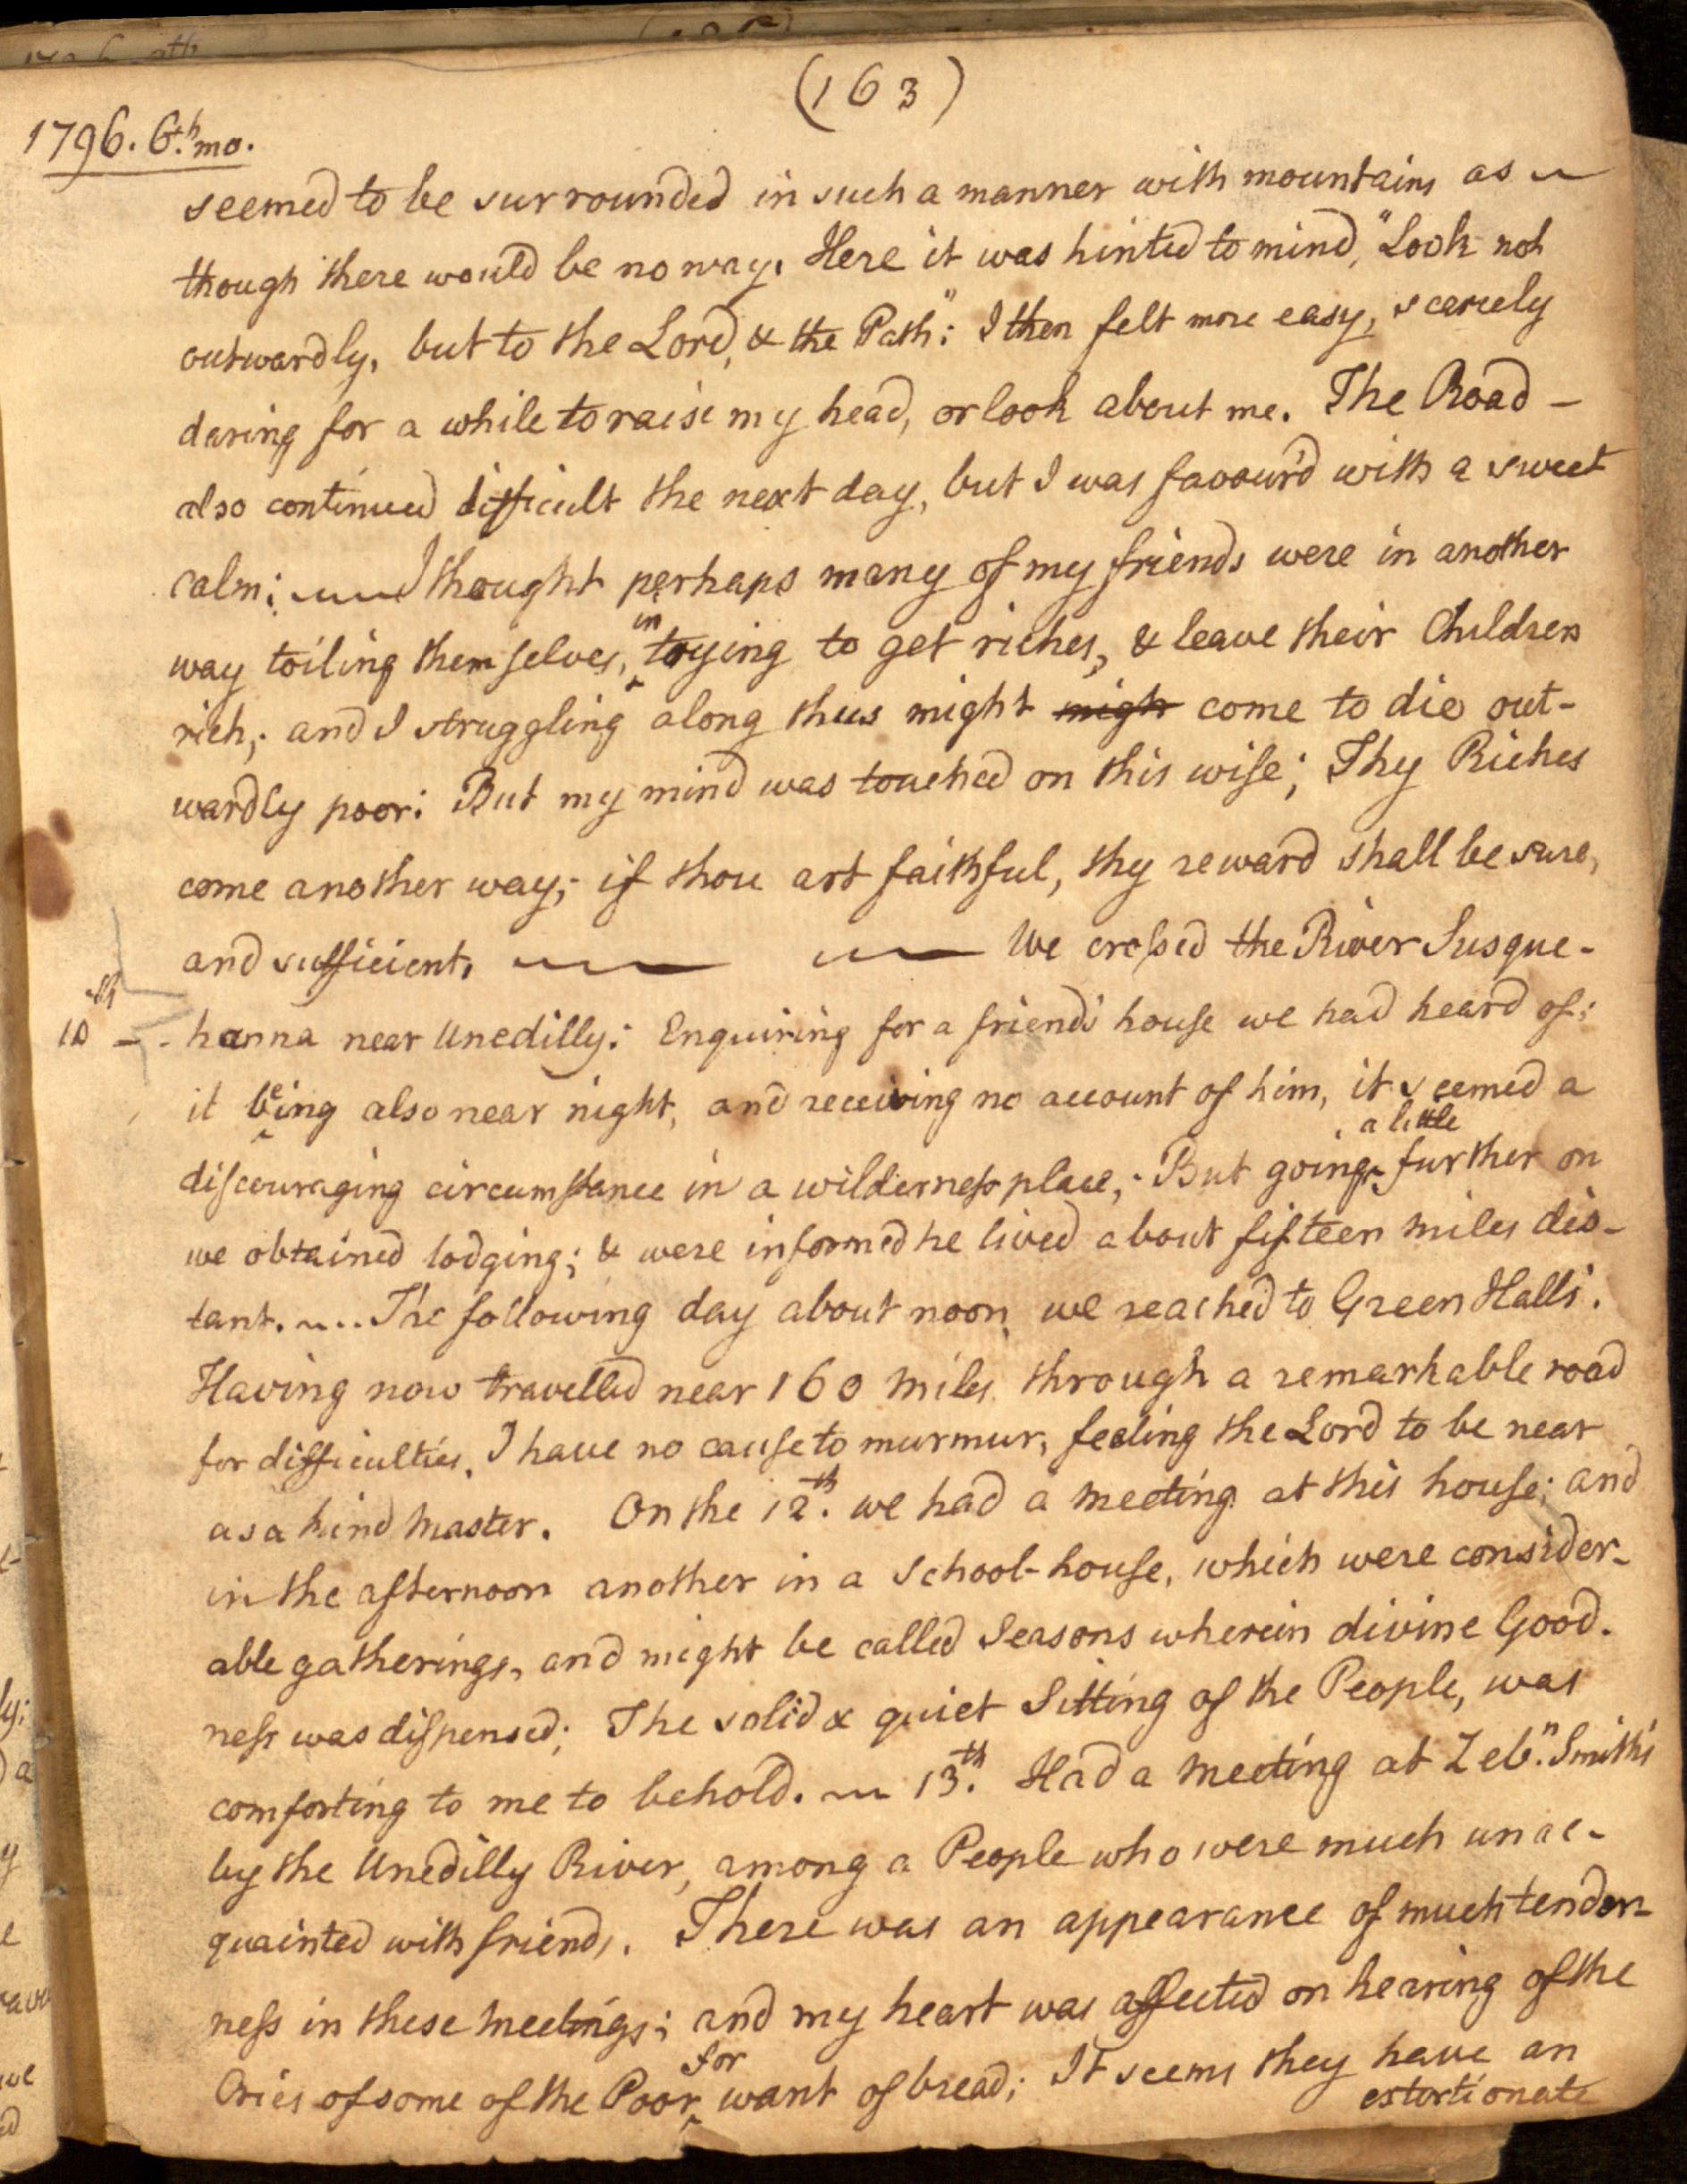 (163)
1796. 6th. mo.
seemed to be surrounded in such a manner with mountains as
though there would be no way. Here it was hinted to mind, "Look not
outwardly, but to the Lord, & the Path": I then felt more easy, scarcely
daring for a while to raise my head, or look about me. The Road -
also continued difficult the next day, but I was favour'd with a sweet
calm; I thought perhaps many of my friends were in another
way toiling themselves, in trying to get riches, & leave their Children
rich; and I struggling along thus might migh come to die out-
wardly poor: But my mind was touched on this wise; Thy Riches
come another way; if thou art faithful, thy reward shall be sure,
and sufficient. We crossed the River Susque-
10th - hanna near Unedilly: Enquiring for a friend's house we had heard of;
it being also near night, and receiving no account of him, it seemed a
discouraging circumstance in a wilderness place; But going a little further on
we obtained lodging; & were informed he lived about fifteen miles dis-
tant. The following day about noon we reached to Green Halls.
Having now travelled near 160 miles through a remarkable road
for difficulties, I have no cause to murmur, feeling the Lord to be near
as a kind Master. On the 12th. we had a meeting at this house; and
in the afternoon another in a School-house, which were consider-
able gatherings, and might be called Seasons wherein divine Good-
ness was dispensed; The solid & quiet Sitting of the People, was
comforting to me to behold. 13th. Had a meeting at Zebn. Smith's
by the Unedilly River, among a People who were much unac-
quainted with friends. There was an appearance of much tender-
ness in these meetings; and my heart was affected on hearing of the
Cries of some of the Poor for want of bread; It seems they have an
extortionate